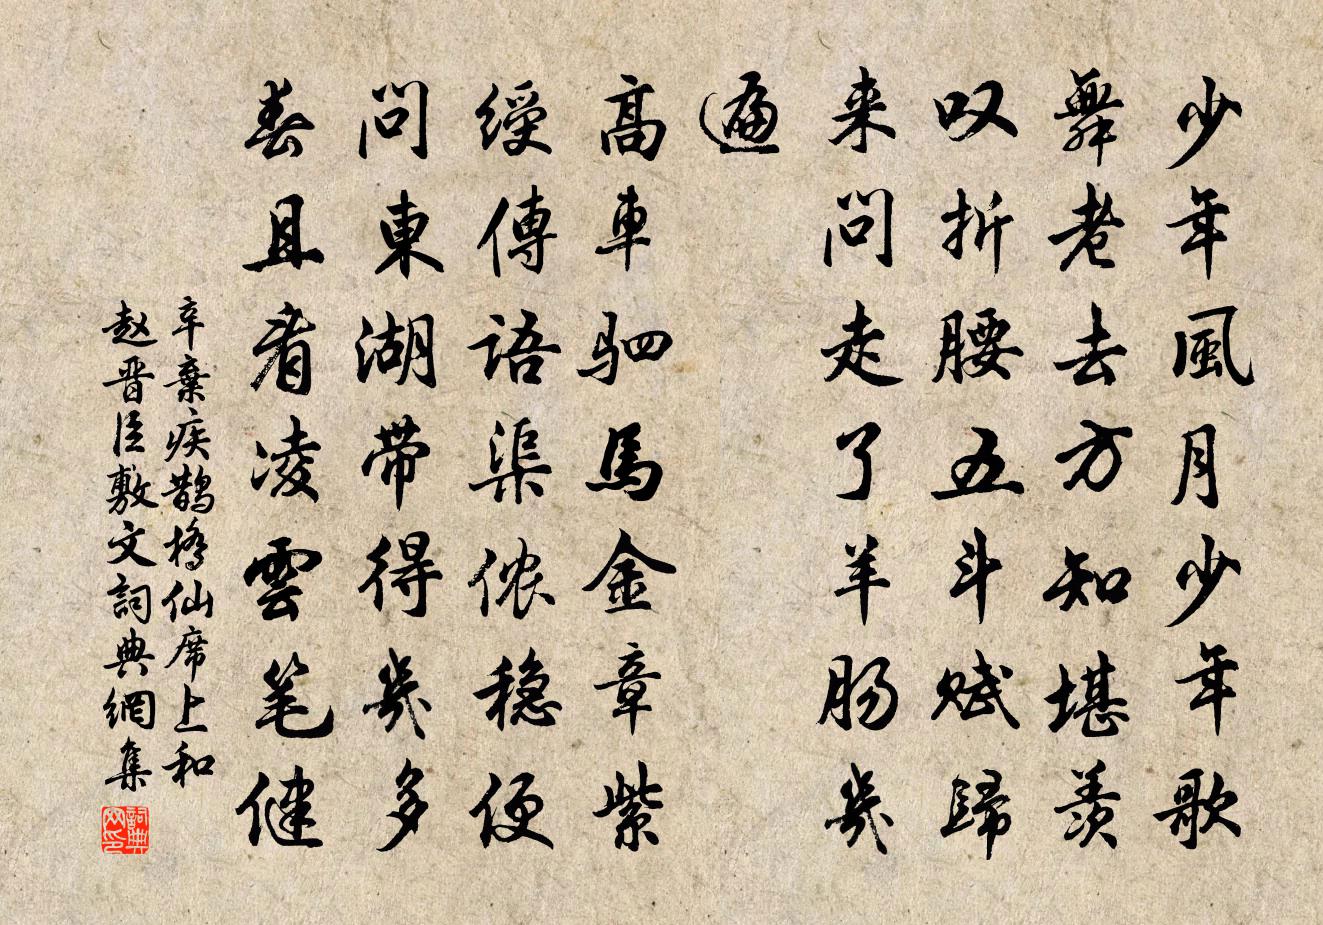 少年風月少年歌
舞老去方知堪羡
叹折腰五斗賦歸
来問走了羊肠幾
遍
高車驷馬金章紫
綬傳語渠侬稳便
問東湖带得幾多
春且看凌雲笔健
辛棄疾鹊橋仙席上和
赵晋臣敷文詞典網集
詞典网印